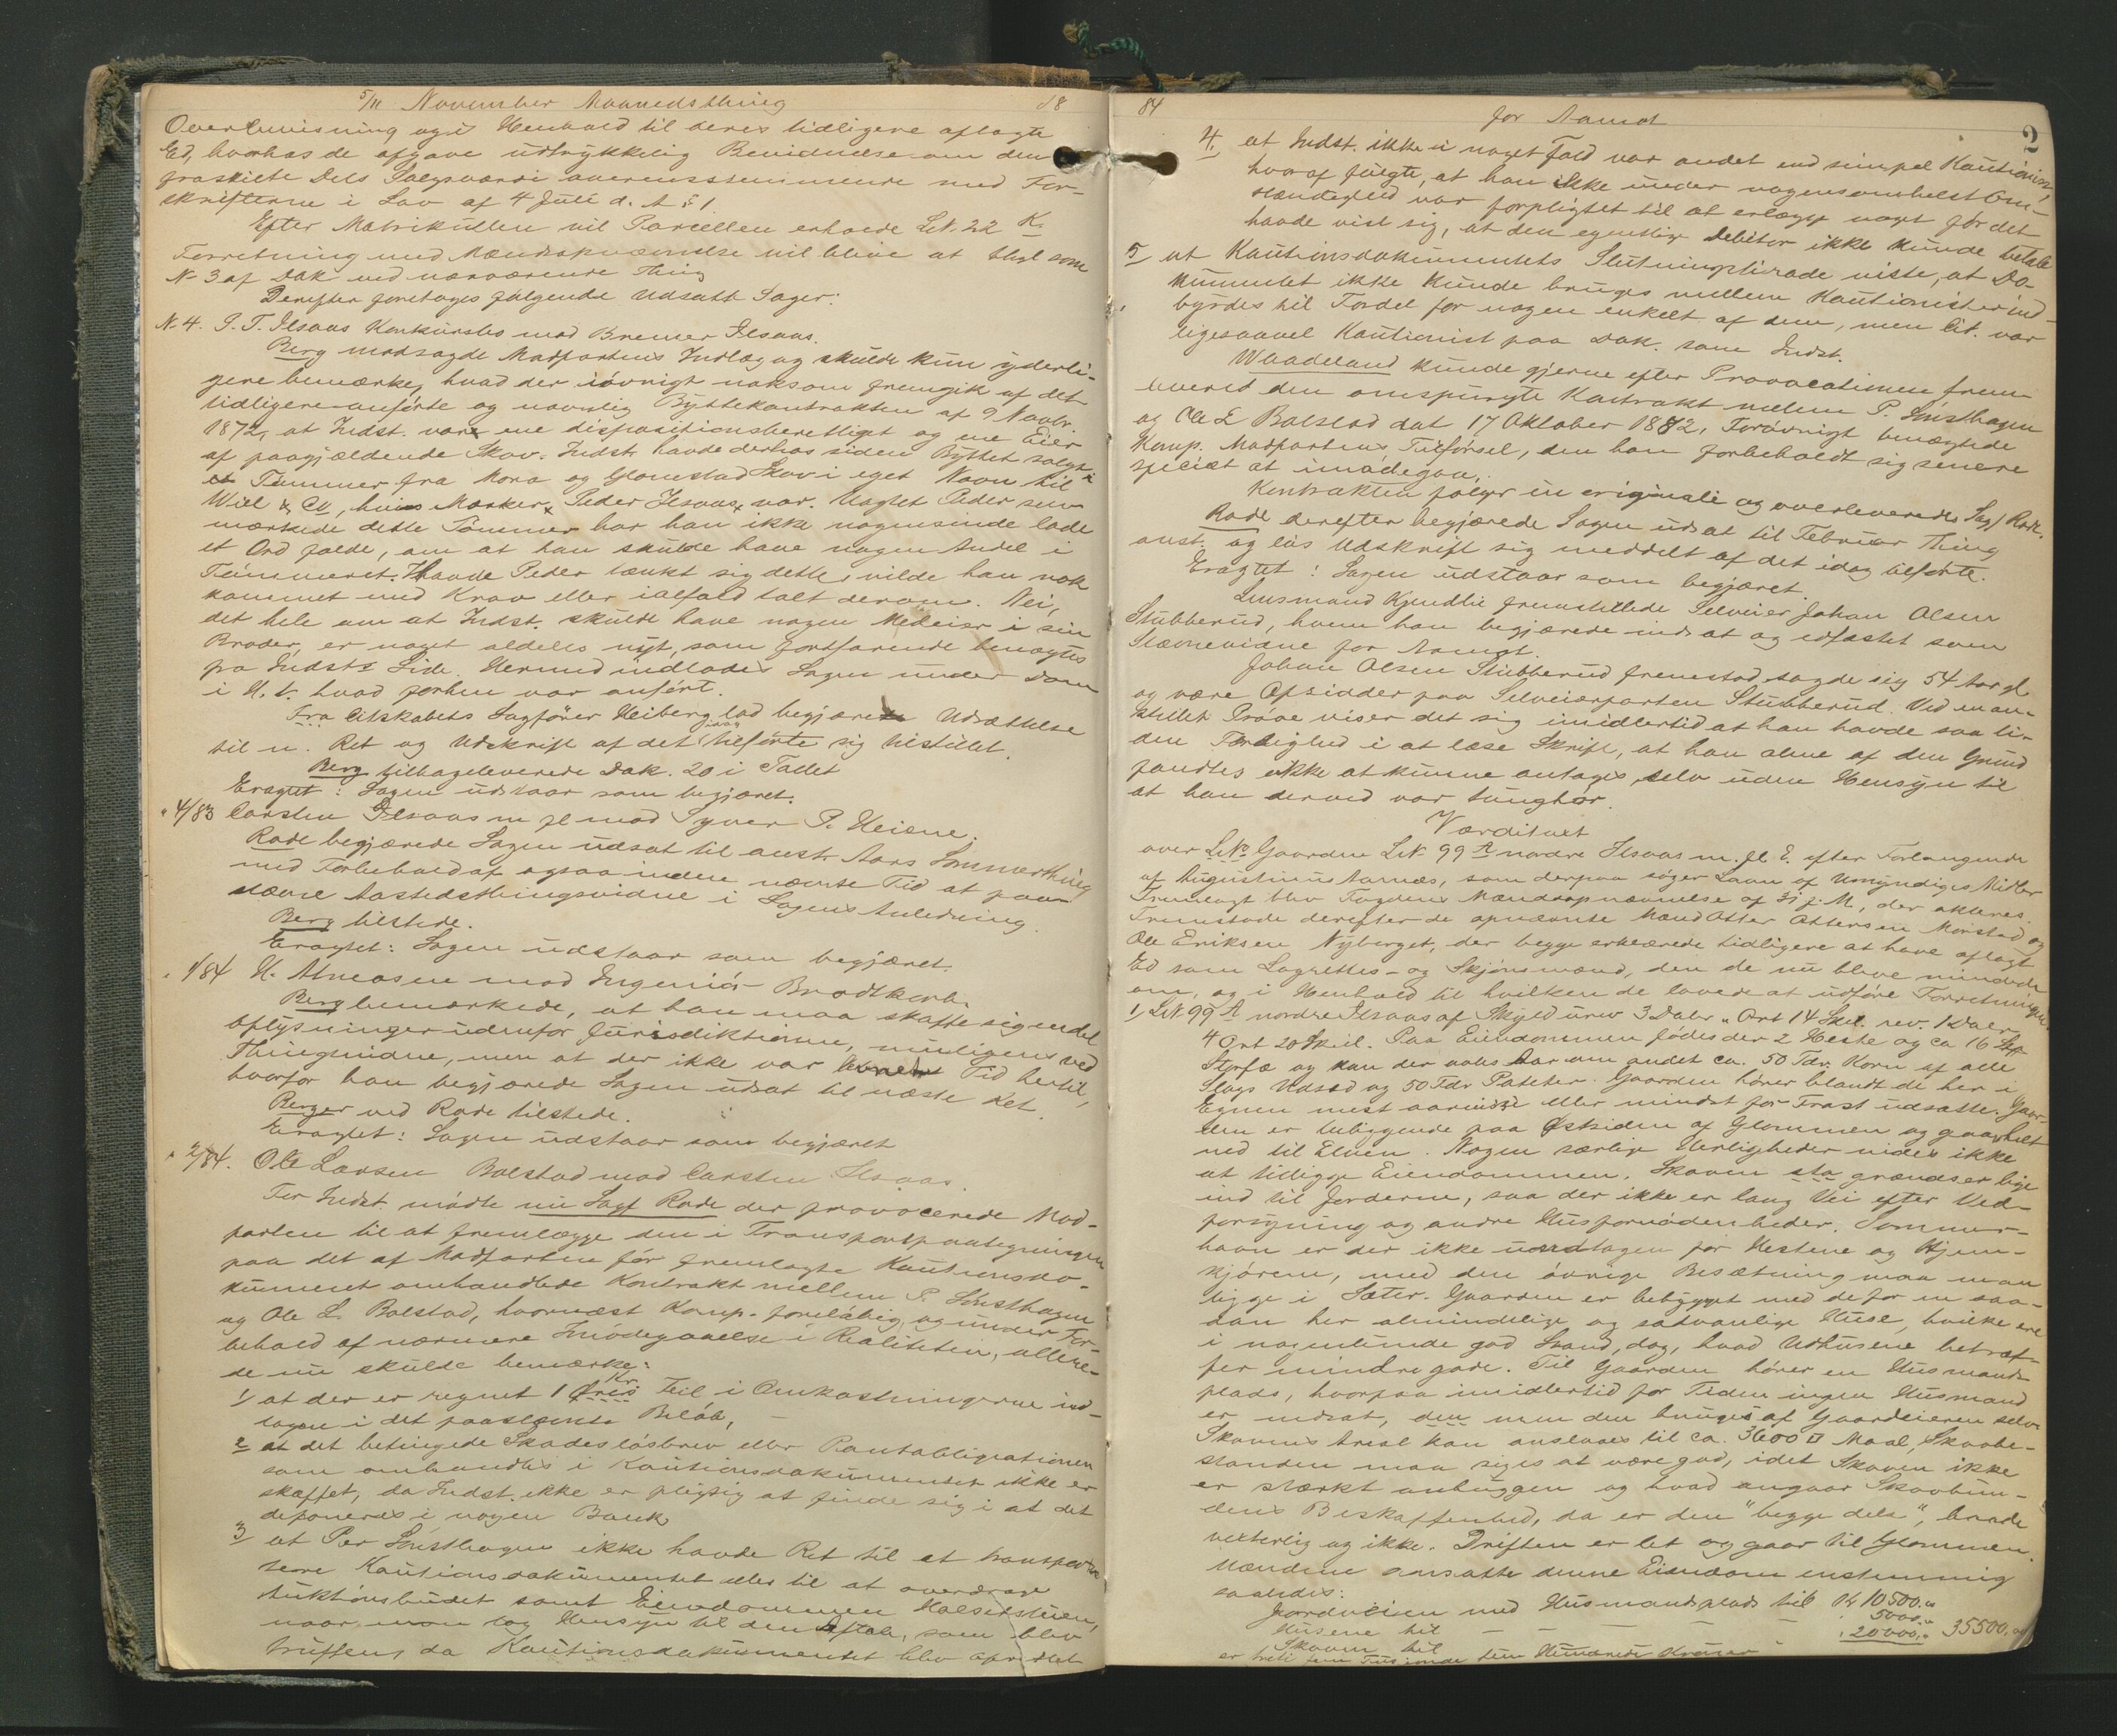 5/11 November Maanedsthing 18
Overbevisning og i Henhold til deres tidligere aflagte
Ed, hvorhos de afgave udtrykkelig Bevidnelse om den
fraskilte Dels Salgsværdi overensstemmende med For-
skrifterne i Lov af 4 Juli d. A § 1.
Efter Matrikullen vil Parcellen erholde L.N. 22 K.
Forretning med Mændsopnævnelse vil blive at tkl som
N 3 af Dok ved nærværende Thing
Derefter foretoges følgende udsatte Sager:
N. 4. P. T. Ilsaas Konkursbo mod Bremer Ilsaas.
Berg modsagde Modpartens Indlæg og skulde kun yderli-
gere bemærke, hvad der iøvrigt noksom fremgik af det
tidligere anførte og navnlig Byttekontrakten af 9 Novbr.
1872, at Indst. var ene dispositionsberettiget og ene Eier
af paagjældende Skov. Indst. havde derhos siden Byttet solgt
Tømmer fra Mora og Glomstad Skov i eget Navn til
Wiel & Co, hvis Mærker Peder Ilsaas var. Uagtet Peder selv
mærkede dette Tømmer har han ikke nogensinde lade
et Ord falde, om at han skulde have nogen Andel i
Tømmeret. Havde Peder tænkt sig dette, vilde han nok
kommet med Krav eller ialfald talt derom. Nei,
det hele om at Indst. skulde have nogen Medeier i sin
Broder, er noget aldeles nyt, som fortfarende benægtes
fra Indsts Side. Hermed indlodes Sagen under Dom
i H. t. hvad forhen var anført.
Fra Citskabets Sagfører Heiberg lod begjære Udsættelse
til n. Ret og Udskrift af det idag tilførte sig tilstillet.
Berg tilbageleverede Dok. 20 i Tallet
Eragtet: Sagen udstaar som begjæret.
" 4/83 Carsten Ilsaas m fl mod Syver P. Heiene.
Rode begjærede Sagen udsat til anst. Aars Sommerthing
med Forbehold af ogsaa inden nævnte Tid at paa-
stævne Aastedsthingsvidne i Sagens Anledning.
Berg tilstede.
Eragtet: Sagen udstaar som begjæret.
" 1/84 H. Ameasen mod Ingeniør Brodtkorb.
Berg bemærkede, at han maa skaffe sig endel
Oplysninger udenfor Jurisdiktionen, muligens ved
Thingsvidne, men at der ikke var levnet Tid hertil,
hvorfor han begjærede Sagen udsat til næste Ret.
Berger ved Rode tilstede.
Eragtet: Sagen udstaar som begjæret
" 2/84. Ole Larsen Bolstad mod Carsten Ilsaas.
For Indst. mødte nu Sagf Rode der provocerede Mod-
parten til at fremlægge den i Transportpaategningen
paa det af Modparten før fremlagte Kautionsdo-
kument omhandlede Kontrakt mellem P. Sønsthagen
og Ole L. Bolstad, hvornæst Komp. foreløbig, og under For-
behold af nærmere Imødegaaelse i Realiteten, allere-
de nu skulde bemærke:
1/ at der er regnet 1 Kr. feil i Omkostningerne ind-
tagen i det paastævnte Beløb,
2 at det betingede Skadesløsbrev eller Pantobligationen
som omhandles i Kautionsdokumentet ikke er
skaffet, da Indst. ikke er pligtig at finde sig i at det
deponeres i nogen Bank
3 at Per Sønsthagen ikke havde Ret til at transpor-
tere Kautionsdokumentet eller til at overdrage
Auktionsbudet samt Eiendommen Halsetstuen,
naar man tog Hensyn til den Aftale, som blev
truffen, da Kautionsdokumentet blev oprettet
84 for Aamot 2
4. at Indst. ikke i noget Fald var andet end simpel Kautionist,
hvoraf fulgte, at han ikke under nogensomhelst Om-
stændighed var forpligtet til at erlægge noget før det
havde vist sig, at den egentlige Debitor ikke kunde betale
5 at Kautionsdokumentets Slutningstirade viste, at Do-
kumentet ikke kunde bruges mellem Kautionisterind-
byrdes til Fordel for nogen enkelt af dem, men Cit. var
ligesaavel Kautionist paa Dok. som Indst.
Waadeland kunde gjerne efter Provocationen frem-
levere den omspurgte Kontrakt mellem P. Sønsthagen
og Ole L Bolstad dat 17 Oktober 1882, Forøvrigt benægtede
Komp. Modpartens Tilførsel, den han forbeholdt sig senere
speciært at imødegaa.
Kontrakten følger in originali og overleveredes Sagf Rode.
Rode derefter begjærede Sagen udsat til Februar Thing
anst. og lös Udskrift sig meddelt af det idag tilførte.
Eragtet: Sagen udstaar som begjæret.
Lensmand Kjendlie fremstillede Selveier Johan Olsen
Stubberud, hvem han begjærede indsat og edfæstet som
Stævnevidne for Aamot.
Johan Olsen Stubberud fremstod, sagde sig 54 Aar gl
og være Opsidder paa Selveierparten Stubberud. Ved en an-
stillet Prøve viser det sig imidlertid at han havde saa li-
den Færdighed i at læse Skrift, at han alene af den Grund
fandtes ikke at kunne antages, selv uden Hensyn til
at han derved var tunghør.
Værditaxt
over Gaarden L.N. 99 A nordre Ilsaas m. fl. E. efter Forlangende
af Augustinus Aarnæs, som derpaa søger Laan af Umyndiges Midler
Fremlagt blev Fogdens Mændsopnævnelse af 31 f. M., der akteres.
Fremstode derefter de opnævnte Mænd Otter Ottersen Morstad og
Ole Eriksen Nyberget, der begge erklærede tidligere at have aflagt
Ed som Lagrettes- og Skjønsmænd, den de nu bleve mindede
om, og i Henhold til hvilken de lovede at udføre Forretningen.
1/ L.N. 99 A nordre Ilsaas af Skyld urev 3 Daler " Ort 14 Skil. rev. 1 Daler
4 Ort 20 Skil. Paa Eiendommen fødes der 2 Heste og ca 16 Stp
Storfæ og kan der avles Aar om andet ca. 50 Tdr. Korn af alle
Slags Udsæd og 50 Tdr Poteter. Gaarden hører blandt de her i
Egnen mest aarvisse eller mindst for Frost udsatte. Gaar-
den er beliggende paa Østsiden af Glommen og gaar helt
ned til Elven. Nogen særlige Herligheder vides ikke
at tilligge Eiendommen. Skoven støgrændser lige
ind til Jorderne, saa der ikke er lang Vei efter Ved-
forsyning og andre Husfornødenheder. Sommer-
havn er der ikke undtagen for Hestene og Hjem-
kjørene, med den øvrige Besætning maa man
ligge i Sæter. Gaarden er bebygget med de for en saa-
dan her almindelige og sædvanlige Huse, hvilke ere
i nogenlunde god Stand, dog, hvad Udhusene betræf-
fer mindre gode. Til Gaarden hører en Husmands-
plads, hvorpaa imidlertid for Tiden ingen Husmand
er indsat, men den bruges af Gaardeieren selv
Skovens Areal kan ansættes til ca. 3600 □ Maal, Skovbe-
standen maa siges at være god, idet Skoven ikke
er stærkt anhuggen og hvad angaar Skovbun-
dens Beskaffenhed, da er den "begge dele", baade
vexterlig og ikke. Driften er let og gaar til Glommen.
Mændene ansatte denne Eiendom enstemmig
saaledes:
Jordveien med Husmandsplads til Kr 10500.00
Husene til — — — 5000."
Skoven til — — " 20000." 35500,00
er tretti fem Tusinde fem Hundrede Kroner